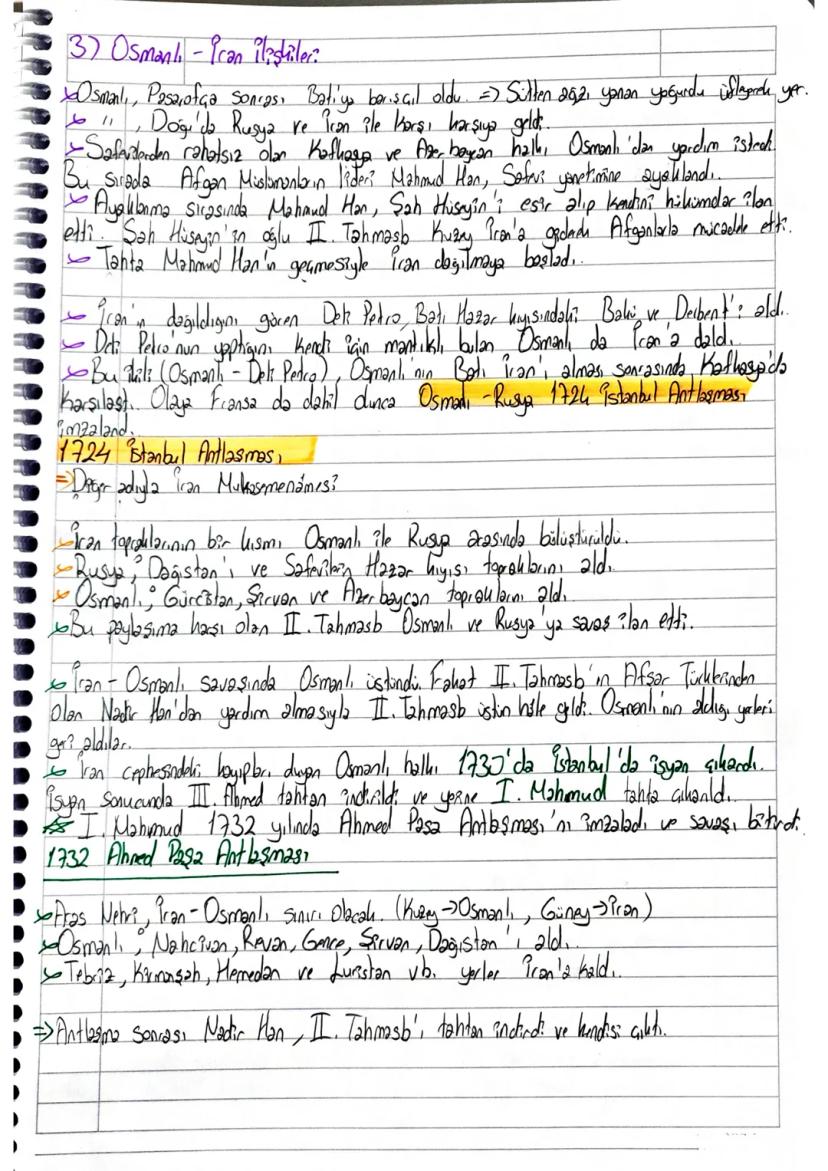 3) Osmanlı - İran İlişkileri
Osmanlı, Pasarofça sonrası Batı'ya barışçıl oldu. => Sütten ağzı yanan yoğurdu üfleyerek yer.
" , Doğu'da Rusya ve İran ile karşı karşıya geldi.
Safevilerden rahatsız olan Kafkasya ve Azerbaycan halkı, Osmanlı'dan yardım istedi.
Bu sırada Afgan Müslümanların lideri Mahmud Han, Safevi yönetimine ayaklandı.
Ayaklanma sırasında Mahmud Han, Şah Hüseyin'i esir alıp kendini hükümdar ilan
etti. Şah Hüseyin'in oğlu II. Tahmasb Kuzey İran'a giderek Afganlarla mücadele etti.
Tahta Mahmud Han'ın geçmesiyle İran dağılmaya başladı.
İran'ın dağıldığını gören Deli Petro, Batı Hazar kıyısındaki Bakü ve Derbent'i aldı.
Deli Petro'nun yaptığını kendi için mantıklı bulan Osmanlı da İran'a daldı.
Bu ikili (Osmanlı - Deli Petro), Osmanlı'nın Batı İran'ı alması sonrasında Kafkasya'da
karşılaştı. Olaya Fransa da dahil olunca Osmanlı - Rusya 1724 İstanbul Antlaşması
imzalandı.
1724 İstanbul Antlaşması
=> Diğer adıyla İran Mukasemenâmesi
İran topraklarının bir kısmı Osmanlı ile Rusya arasında bölüştürüldü.
Rusya; Dağıstan'ı ve Safevilerin Hazar kıyısı topraklarını aldı.
Osmanlı; Gürcistan, Şirvan ve Azerbaycan topraklarını aldı.
Bu paylaşıma karşı olan II. Tahmasb Osmanlı ve Rusya'ya savaş ilan etti.
İran - Osmanlı savaşında Osmanlı üstündü. Fakat II. Tahmasb'ın Afşar Türklerinden
olan Nadir Han'dan yardım almasıyla II. Tahmasb üstün hâle geldi. Osmanlı'nın aldığı yerleri
geri aldılar.
İran cephesindeki kayıpları duyan Osmanlı halkı 1730'da İstanbul'da isyan çıkardı.
İsyan sonucunda III. Ahmed tahtan indirildi ve yerine I. Mahmud tahta çıkarıldı.
I. Mahmud 1732 yılında Ahmed Paşa Antlaşması'nı imzaladı ve savaşı bitirdi.
1732 Ahmed Paşa Antlaşması
Aras Nehri, İran - Osmanlı sınırı olacak. (Kuzey → Osmanlı, Güney → İran)
Osmanlı; Nahcivan, Revan, Gence, Şirvan, Dağıstan'ı aldı.
Tebriz, Kirmanşah, Hemedan ve Luristan vb. yerler İran'a kaldı.
=> Antlaşma sonrası Nadir Han, II. Tahmasb'ı tahtan indirdi ve kendisi çıktı.